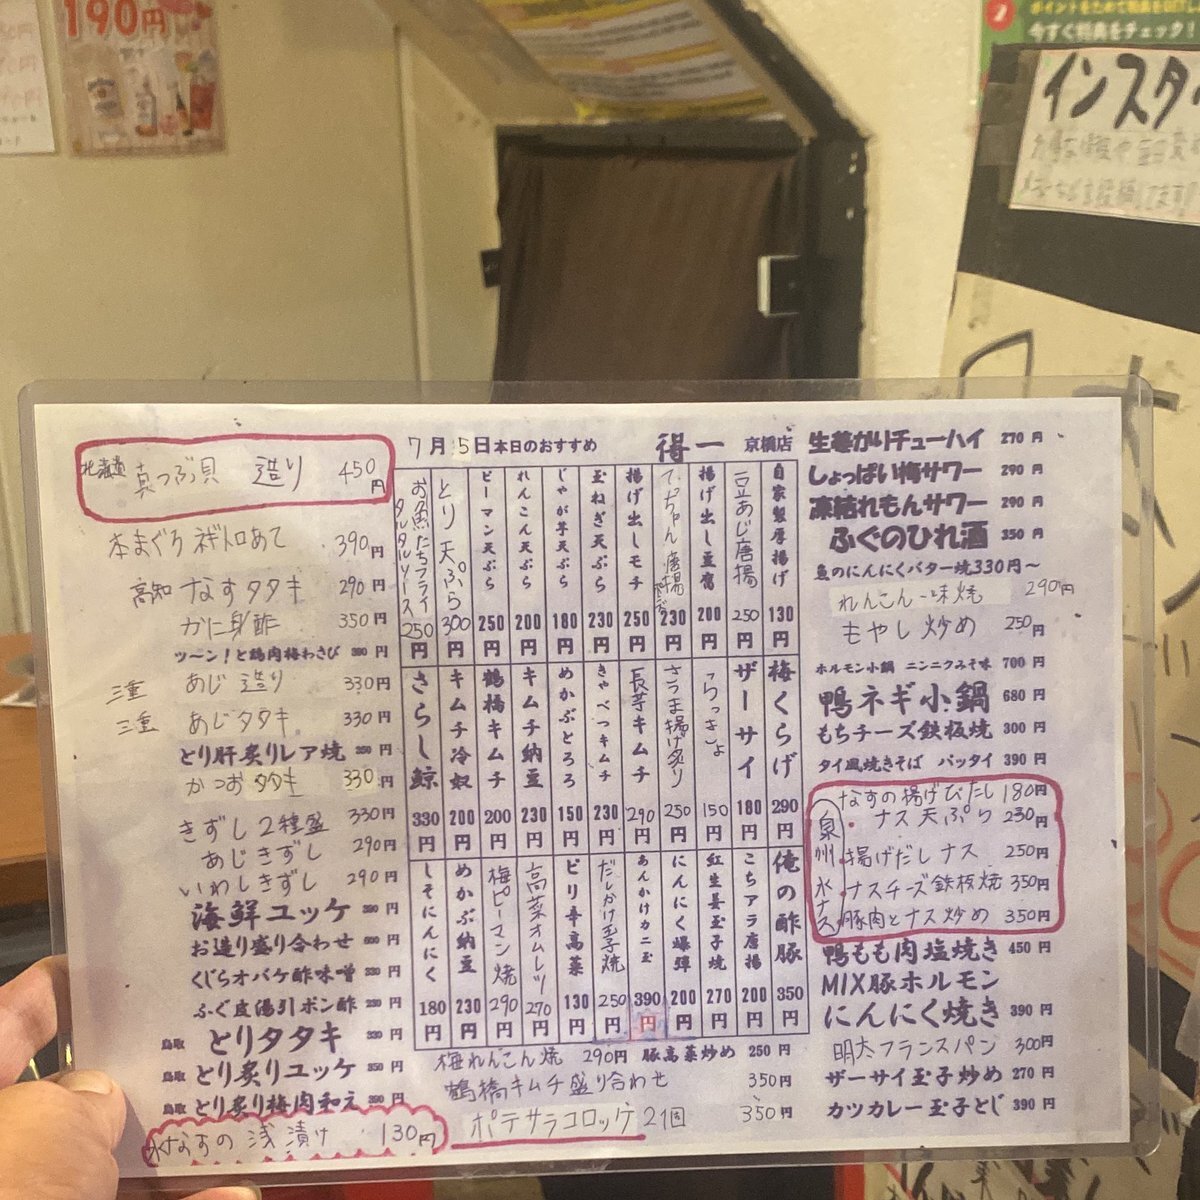 190円
今すぐ特典をチェック!
インスタ
7月5日本日のおすすめ 得一 京橋店
北海道 真つぶ貝 造り 450円
本まぐろ ネギトロあて 390円
高知 なすタタキ 290円
かに身酢 350円
ツ〜ン!と鶏肉梅わさび 390円
三重 あじ 造り 330円
三重 あじタタキ 330円
とり肝炙りレア焼 350円
かつおタタキ 330円
きずし2種盛 330円
あじきずし 290円
いわしきずし 290円
海鮮ユッケ 390円
お造り盛り合わせ
くじらオバケ酢味噌 330円
ふぐ皮湯引ポン酢 290円
鳥取 とりタタキ 330円
鳥取 とり炙りユッケ 350円
鳥取 とり炙り梅肉和え 390円
水なすの浅漬け 130円
自家製厚揚げ 130円
豆あじ唐揚 250円
揚げ出し豆腐 200円
てっちゃん唐揚 230円
揚げ出しモチ 250円
玉ねぎ天ぷら 230円
じゃが芋天ぷら 180円
れんこん天ぷら 200円
ピーマン天ぷら 250円
とり天ぷら 300円
お魚たちフライ タルタルソース 250円
梅くらげ 290円
ザーサイ 180円
らっきょ 150円
さつま揚げ炙り 250円
長芋キムチ 290円
きゃべつキムチ 230円
めかぶとろろ 150円
キムチ納豆 230円
鶴橋キムチ 200円
キムチ冷奴 200円
さらし鯨 330円
俺の酢豚 350円
こちアラ唐揚 200円
紅生姜玉子焼 270円
にんにく爆弾 200円
あんかけカニ玉 390円
だしかけ玉子焼 250円
ピリ辛高菜 130円
高菜オムレツ 270円
梅ピーマン焼 290円
めかぶ納豆 230円
しそにんにく 180円
梅れんこん焼 290円 豚高菜炒め 250円
鶴橋キムチ盛り合わせ 350円
ポテサラコロッケ2個 350円
生姜がりチューハイ 270円
しょっぱい梅サワー 290円
凍結れもんサワー 290円
ふぐのひれ酒 350円
魚のにんにくバター焼330円〜
れんこん一味焼 290円
もやし炒め 250円
ホルモン小鍋 ニンニクみそ味 700円
鴨ネギ小鍋 680円
もちチーズ鉄板焼 300円
タイ風焼きそば パッタイ 390円
泉州水ナス
なすの揚げびたし 180円
・ナス天ぷら 230円
・揚げだしナス 250円
・ナスチーズ鉄板焼 350円
・豚肉とナス炒め 350円
鴨もも肉塩焼き 450円
MIX豚ホルモン
にんにく焼き 390円
明太フランスパン 300円
ザーサイ玉子炒め 270円
カツカレー玉子とじ 390円